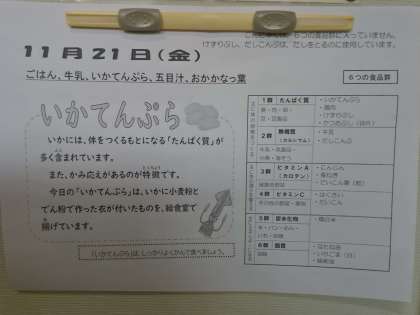 ６つの食品群に入っていません。
けずりぶし、だしこんぶは、だしをとるのに使用しています。
１１月２１日(金)
ごはん、牛乳、いかてんぷら、五目汁、おかかなっ葉
６つの食品群
いかてんぷら
いかには、体をつくるもとになる「たんぱく質」が
多く含まれています。
また、かみ応えがあるのが特徴です。
今日の「いかてんぷら」は、いかに小麦粉と
でん粉で作った衣が付いたものを、給食室で
揚げています。
「いかてんぷら」は、しっかりよくかんで食べましょう。
１群 たんぱく質
・いかてんぷら
・鶏肉
・けずりぶし
２群 無機質
(カルシウム)
・牛乳
・だしこんぶ
３群 ビタミンA
(カロテン)
・にんじん
４群 ビタミンC
・はくさい
・だいこん
５群 炭水化物
・精白米
６群 脂質